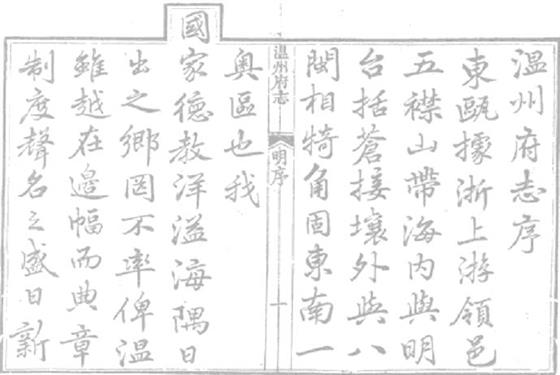 温州府志序
東甌據浙上游領邑
五襟山帶海内與明
台括蒼接壤外與八
閩相犄角固東南一
温州府志
明序
一
奥區也我
國家德教洋溢海隅日
出之鄉罔不率俾温
雖越在邊幅而典章
制度聲名之盛日新